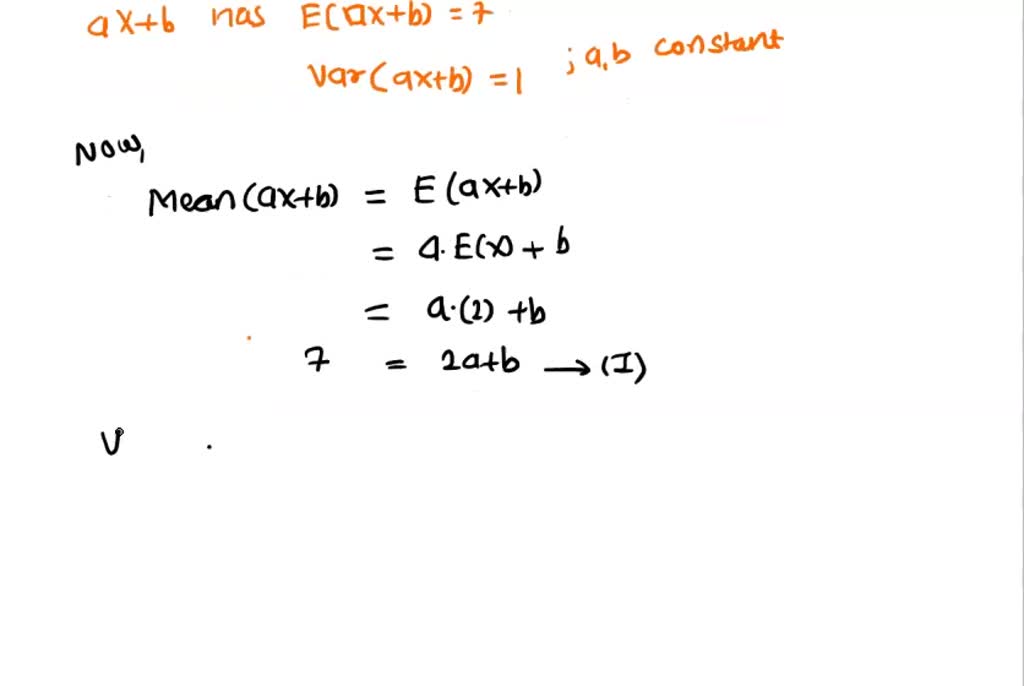 ax+b has E(ax+b) = 7
Var(ax+b) = 1 ; a,b constant
Now,
Mean(ax+b) = E(ax+b)
= a.E(x) + b
= a.(2) +b
7 = 2a+b → (I)
V